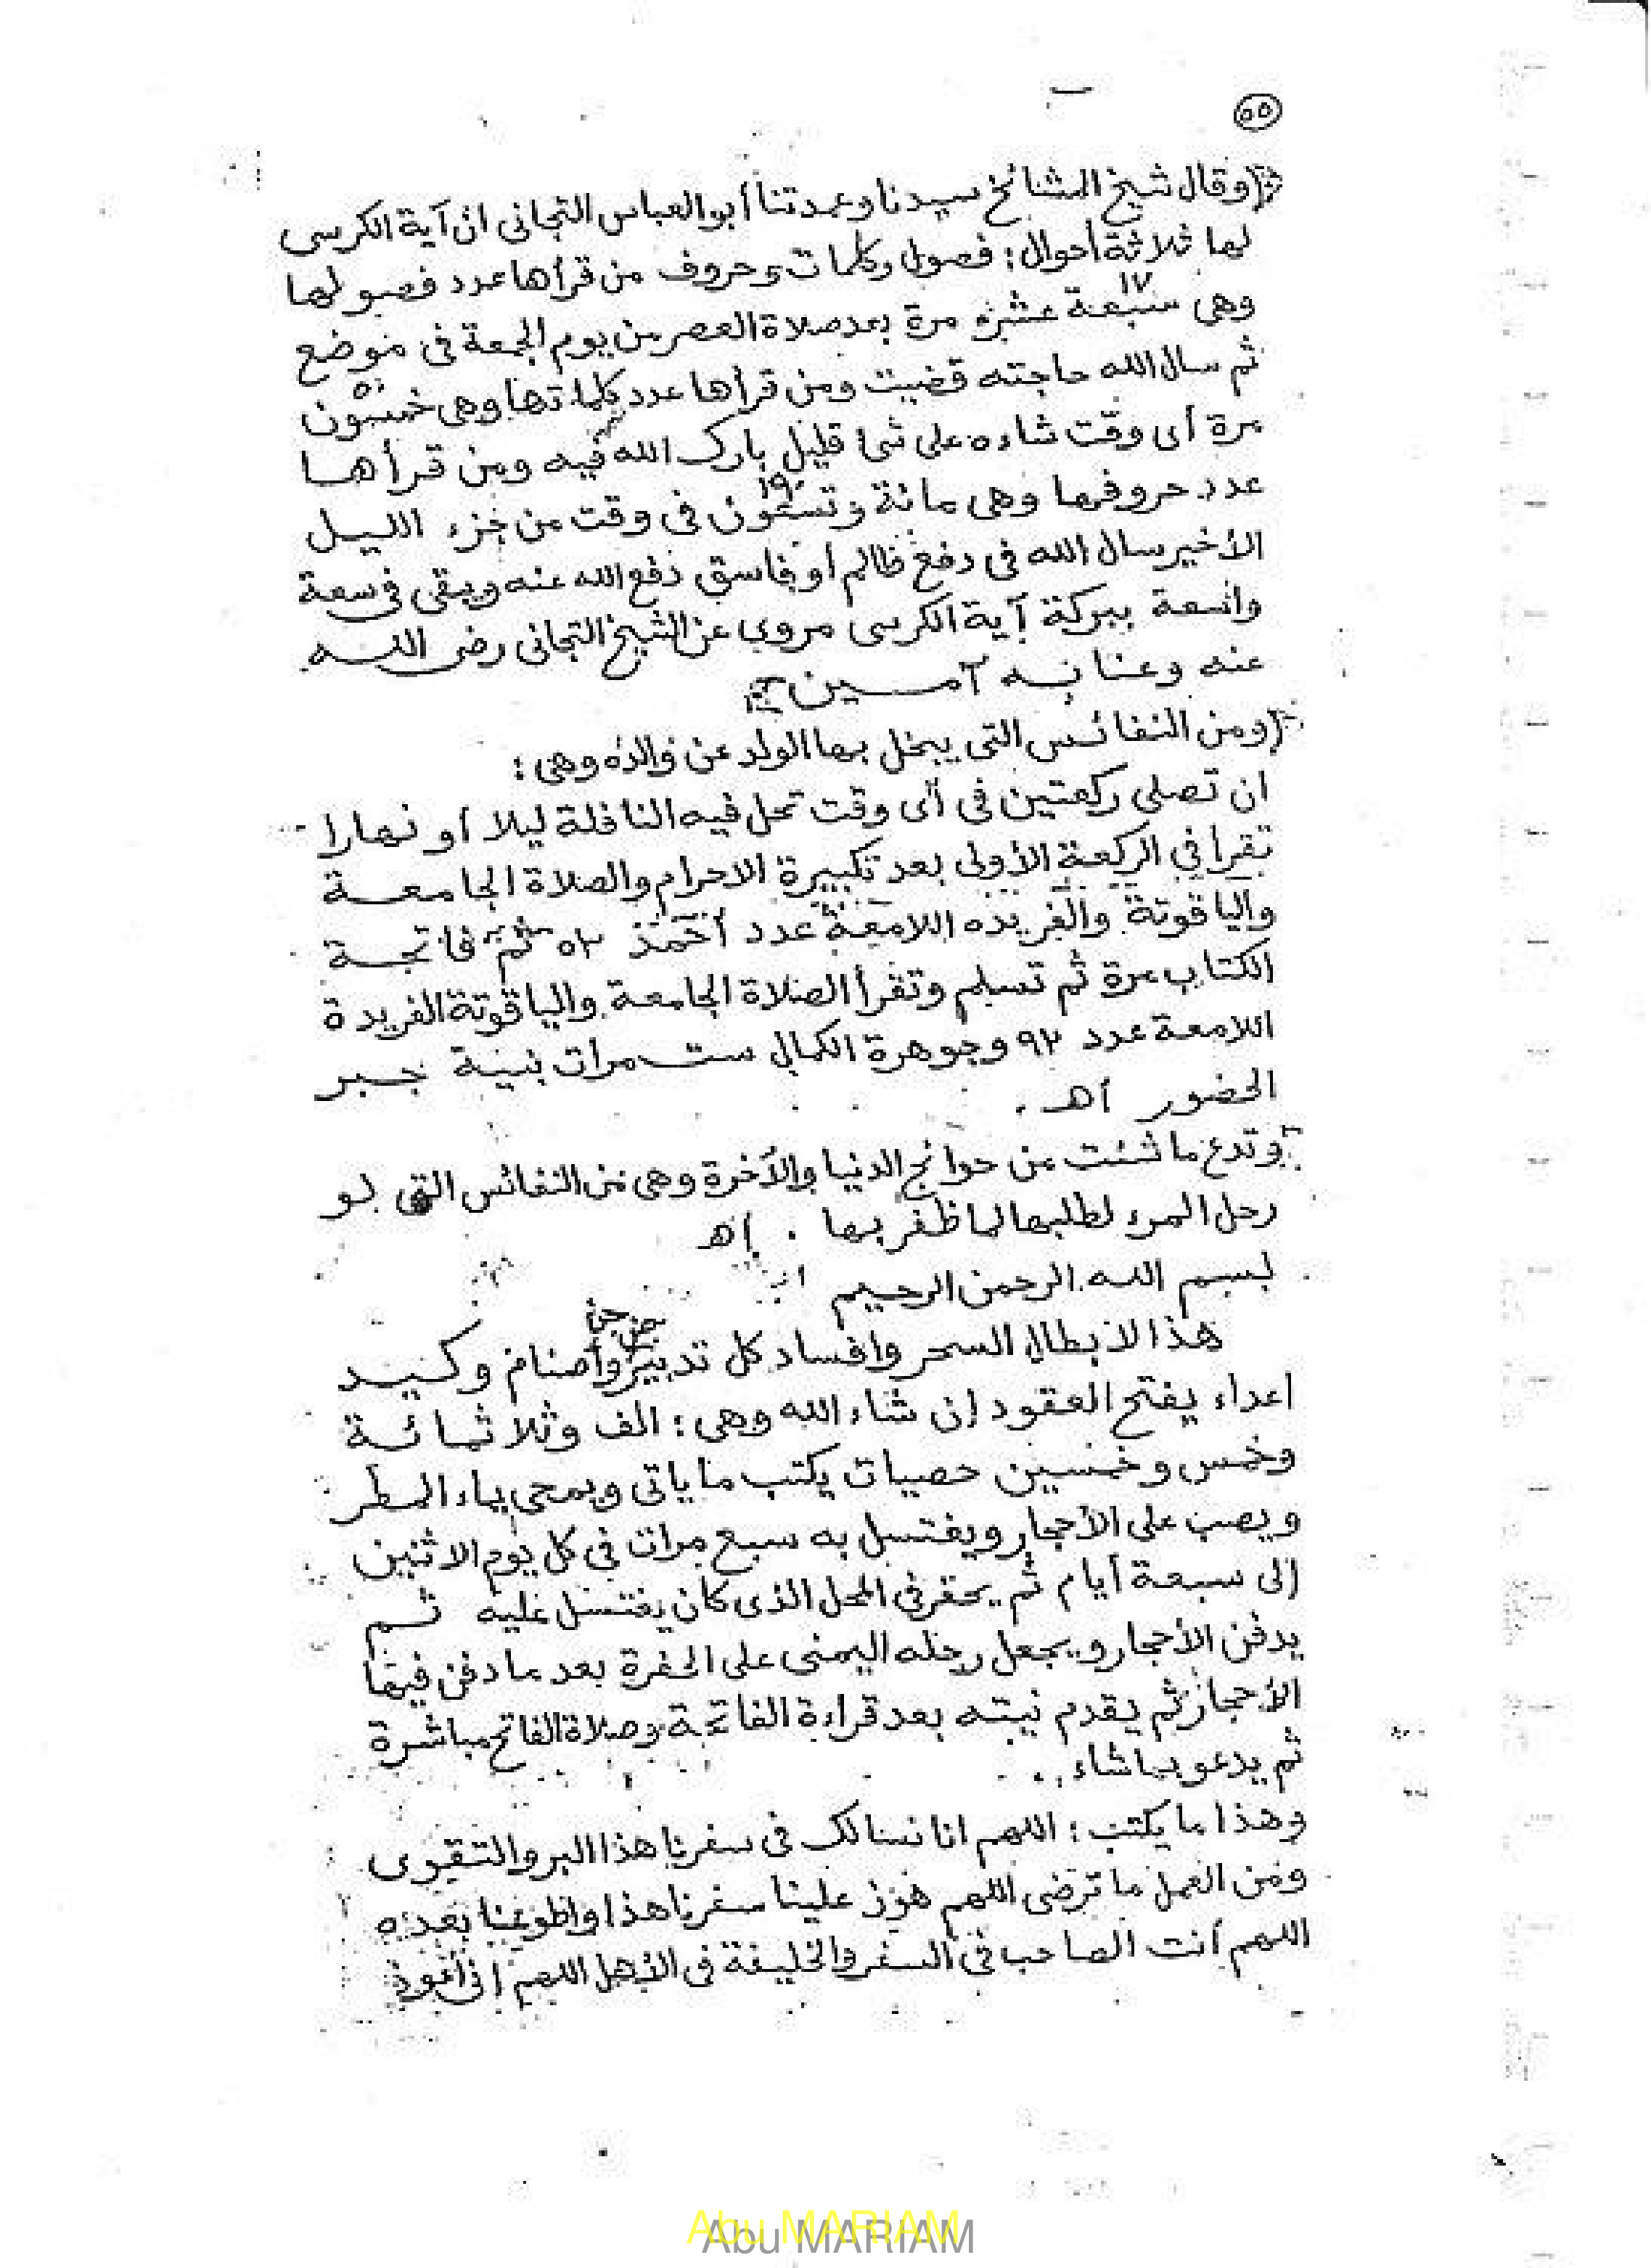 ٥٥
وقال شيخ المشائخ سيدنا وعمدتنا أبو العباس التجانى ان آية الكرسى
لها ثلاثة أحوال : فصول وكلمات وحروف من قرأها عدد فصولها
١٧
وهى سبعة عشرة مرة بعد صلاة العصر من يوم الجمعة فى موضع
ثم سال الله حاجته قضيت ومن قرأها عدد كلماتها وهى خمسون
٥٠
مرة أى وقت شاءه على شئ قليل بارك الله فيه ومن قرأها
عدد حروفها وهى مائة وتسعون فى وقت من جزء الليل
١٩٠
الأخير سال الله فى دفع ظالم أو فاسق دفع الله عنه ويبقى فى سعة
واسعة ببركة آية الكرسى مروى عن الشيخ التجانى رضى الله
عنه وعنا به آمين
(ومن النفائس التى يبخل بها الولد عن والده وهى :
ان تصلى ركعتين فى أى وقت تحل فيه النافلة ليلا أو نهارا
تقرا في الركعة الأولى بعد تكبيرة الاحرام والصلاة الجامعة
والياقوتة والفريده اللامعة عدد أحمد ٥٣ ثم فاتحة
الكتاب مرة ثم تسلم وتقرأ الصلاة الجامعة والياقوتة الفريدة
اللامعة عدد ٩٢ وجوهرة الكمال ست مرات بنية جبر
الحضور أهـ .
وتدع ما شئت من حوائج الدنيا والأخرة وهى من النفائس التى لو
رحل المرء لطلبها لما ظفر بها . إهـ
بسم الله الرحمن الرحيم
هذا لابطال السحر وافساد كل تدبير وأصنام وكيد
من جن
اعداء يفتح العقود إن شاء الله وهى : الف وثلاثمائة
وخمس وخمسين حصيات يكتب ما ياتى ويمحى بماء المطر
ويصب على الأحجار ويغتسل به سبع مرات فى كل يوم الاثنين
إلى سبعة أيام ثم يحفر فى المحل الذى كان يغتسل عليه ثم
يدفن الأحجار ويجعل رجله اليمنى على الحفرة بعد ما دفن فيها
الأحجار ثم يقدم نيته بعد قراءة الفاتحة وصلاة الفاتح مباشرة
ثم يدعو بماشاء .
وهذا ما يكتب : اللهم انا نسالك فى سفرنا هذا البر والتقوى
ومن العمل ما ترضى اللهم هون علينا سفرنا هذا واطو عنا بعده
اللهم أنت الصاحب فى السفر والخليفة فى الأهل اللهم إنى أعوذ
Abu MARIAM
Abu MARIAM